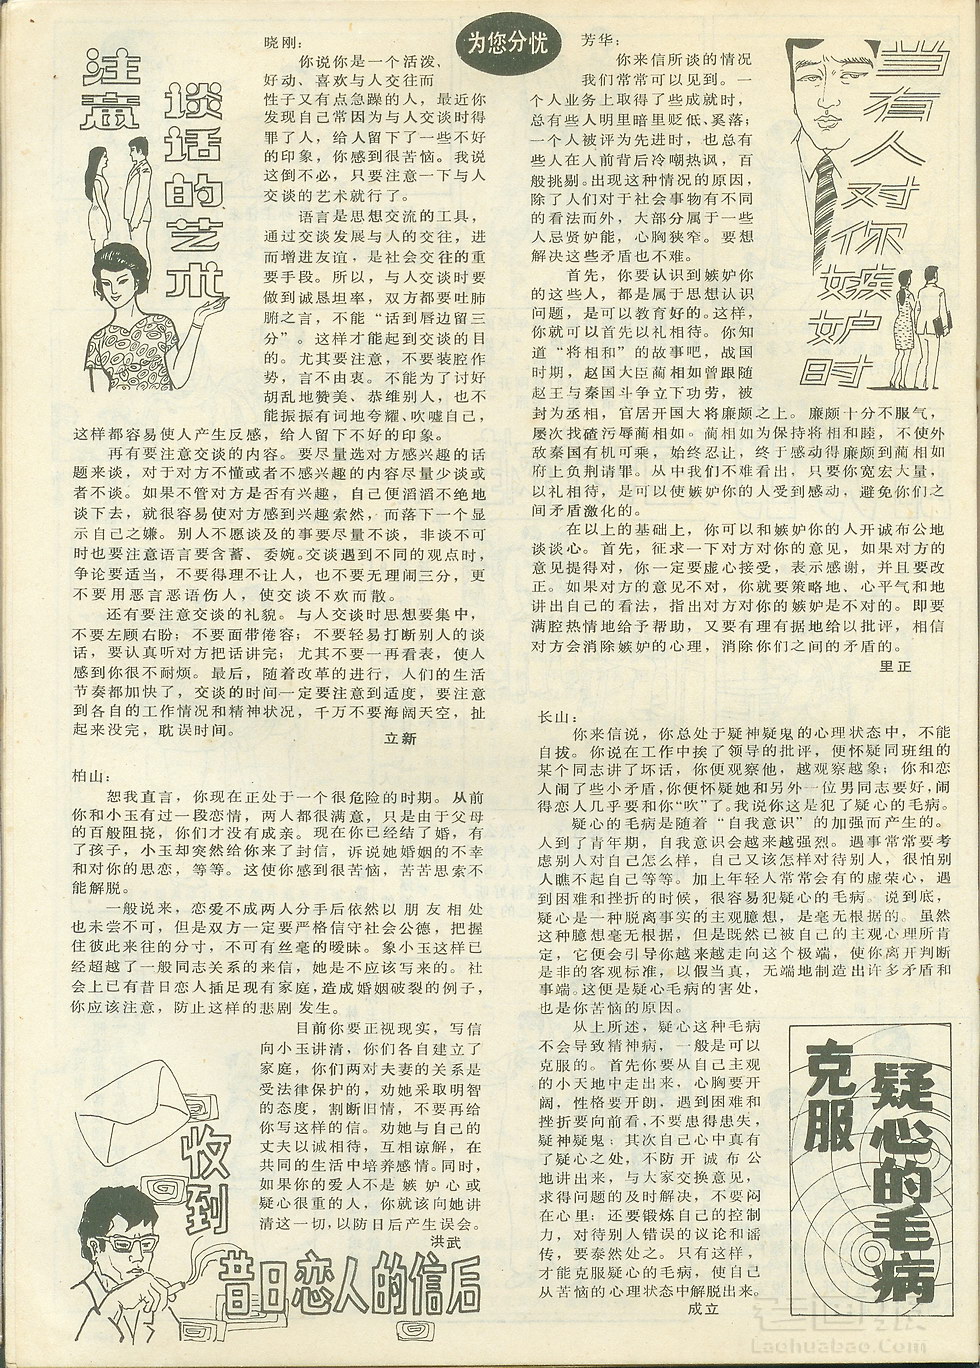 为您分忧
注意
谈话的艺术
晓刚：
你说你是一个活泼、
好动、喜欢与人交往而
性子又有点急躁的人，最近你
发现自己常因为与人交谈时得
罪了人，给人留下了一些不好
的印象，你感到很苦恼。我说
这倒不必，只要注意一下与人
交谈的艺术就行了。
语言是思想交流的工具，
通过交谈发展与人的交往，进
而增进友谊，是社会交往的重
要手段。所以，与人交谈时要
做到诚恳坦率，双方都要吐肺
腑之言，不能“话到唇边留三
分”。这样才能起到交谈的目
的。尤其要注意，不要装腔作
势，言不由衷。不能为了讨好
胡乱地赞美、恭维别人，也不
能振振有词地夸耀、吹嘘自己，
这样都容易使人产生反感，给人留下不好的印象。
再有要注意交谈的内容。要尽量选对方感兴趣的话
题来谈，对于对方不懂或者不感兴趣的内容尽量少谈或
者不谈。如果不管对方是否有兴趣，自己便滔滔不绝地
谈下去，就很容易使对方感到兴趣索然，而落下一个显
示自己之嫌。别人不愿谈及的事要尽量不谈，非谈不可
时也要注意语言要含蓄、委婉。交谈遇到不同的观点时，
争论要适当，不要得理不让人，也不要无理闹三分，更
不要用恶言恶语伤人，使交谈不欢而散。
还有要注意交谈的礼貌。与人交谈时思想要集中，
不要左顾右盼；不要面带倦容；不要轻易打断别人的谈
话，要认真听对方把话讲完；尤其不要一再看表，使人
感到你很不耐烦。最后，随着改革的进行，人们的生活
节奏都加快了，交谈的时间一定要注意到适度，要注意
到各自的工作情况和精神状况，千万不要海阔天空，扯
起来没完，耽误时间。
立新
柏山：
恕我直言，你现在正处于一个很危险的时期。从前
你和小玉有过一段恋情，两人都很满意，只是由于父母
的百般阻挠，你们才没有成亲。现在你已经结了婚，有
了孩子，小玉却突然给你来了封信，诉说她婚姻的不幸
和对你的思恋，等等。这使你感到很苦恼，苦苦思索不
能解脱。
一般说来，恋爱不成两人分手后依然以朋友相处
也未尝不可，但是双方一定要严格信守社会公德，把握
住彼此来往的分寸，不可有丝毫的暧昧。象小玉这样已
经超越了一般同志关系的来信，她是不应该写来的。社
会上已有昔日恋人插足现有家庭，造成婚姻破裂的例子，
你应该注意，防止这样的悲剧发生。
目前你要正视现实，写信
向小玉讲清，你们各自建立了
家庭，你们两对夫妻的关系是
受法律保护的，劝她采取明智
的态度，割断旧情，不要再给
你写这样的信。劝她与自己的
丈夫以诚相待，互相谅解，在
共同的生活中培养感情。同时，
如果你的爱人不是嫉妒心或
疑心很重的人，你就该向她讲
清这一切，以防日后产生误会。
洪武
收到
昔日恋人的信后
芳华：
你来信所谈的情况
我们常常可以见到。一
个人业务上取得了些成就时，
总有些人明里暗里贬低、奚落；
一个人被评为先进时，也总有
些人在人前背后冷嘲热讽，百
般挑剔。出现这种情况的原因，
除了人们对于社会事物有不同
的看法而外，大部分属于一些
人忌贤妒能，心胸狭窄。要想
解决这些矛盾也不难。
首先，你要认识到嫉妒你
的这些人，都是属于思想认识
问题，是可以教育好的。这样，
你就可以首先以礼相待。你知
道“将相和”的故事吧，战国
时期，赵国大臣蔺相如曾跟随
赵王与秦国斗争立下功劳，被
封为丞相，官居开国大将廉颇之上。廉颇十分不服气，
屡次找碴污辱蔺相如。蔺相如为保持将相和睦，不使外
敌秦国有机可乘，始终忍让，终于感动得廉颇到蔺相如
府上负荆请罪。从中我们不难看出，只要你宽宏大量，
以礼相待，是可以使嫉妒你的人受到感动，避免你们之
间矛盾激化的。
在以上的基础上，你可以和嫉妒你的人开诚布公地
谈谈心。首先，征求一下对方对你的意见，如果对方的
意见提得对，你一定要虚心接受，表示感谢，并且要改
正。如果对方的意见不对，你就要策略地、心平气和地
讲出自己的看法，指出对方对你的嫉妒是不对的。即要
满腔热情地给予帮助，又要有理有据地给以批评，相信
对方会消除嫉妒的心理，消除你们之间的矛盾的。
里正
当有人对你嫉妒时
长山：
你来信说，你总处于疑神疑鬼的心理状态中，不能
自拔。你说在工作中挨了领导的批评，便怀疑同班组的
某个同志讲了坏话，你便观察他，越观察越象；你和恋
人闹了些小矛盾，你便怀疑她和另外一位男同志要好，闹
得恋人几乎要和你“吹”了。我说你这是犯了疑心的毛病。
疑心的毛病是随着“自我意识”的加强而产生的。
人到了青年期，自我意识会越来越强烈。遇事常常要考
虑别人对自己怎么样，自己又该怎样对待别人，很怕别
人瞧不起自己等等。加上年轻人常常会有的虚荣心，遇
到困难和挫折的时候，很容易犯疑心的毛病。说到底，
疑心是一种脱离事实的主观臆想，是毫无根据的。虽然
这种臆想毫无根据，但是既然已被自己的主观心理所肯
定，它便会引导你越来越走向这个极端，使你离开判断
是非的客观标准，以假当真，无端地制造出许多矛盾和
事端。这便是疑心毛病的害处，
也是你苦恼的原因。
从上所述，疑心这种毛病
不会导致精神病，一般是可以
克服的。首先你要从自己主观
的小天地中走出来，心胸要开
阔，性格要开朗，遇到困难和
挫折要向前看，不要患得患失，
疑神疑鬼；其次自己心中真有
了疑心之处，不防开诚布公
地讲出来，与大家交换意见，
求得问题的及时解决，不要闷
在心里；还要锻炼自己的控制
力，对待别人错误的议论和谣
传，要泰然处之。只有这样，
才能克服疑心的毛病，使自己
从苦恼的心理状态中解脱出来。
成立
克服
疑心的毛病
老画报
Laohuabao.Com